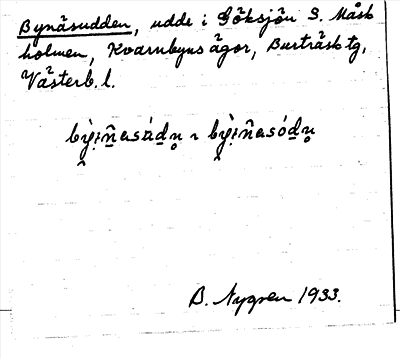 Bynäsudden, udde i Göksjön S. Måsk
holmen, Kvarnbyns ägor, Burträsk tg,
Västerb. l.
B. Nygren 1933.